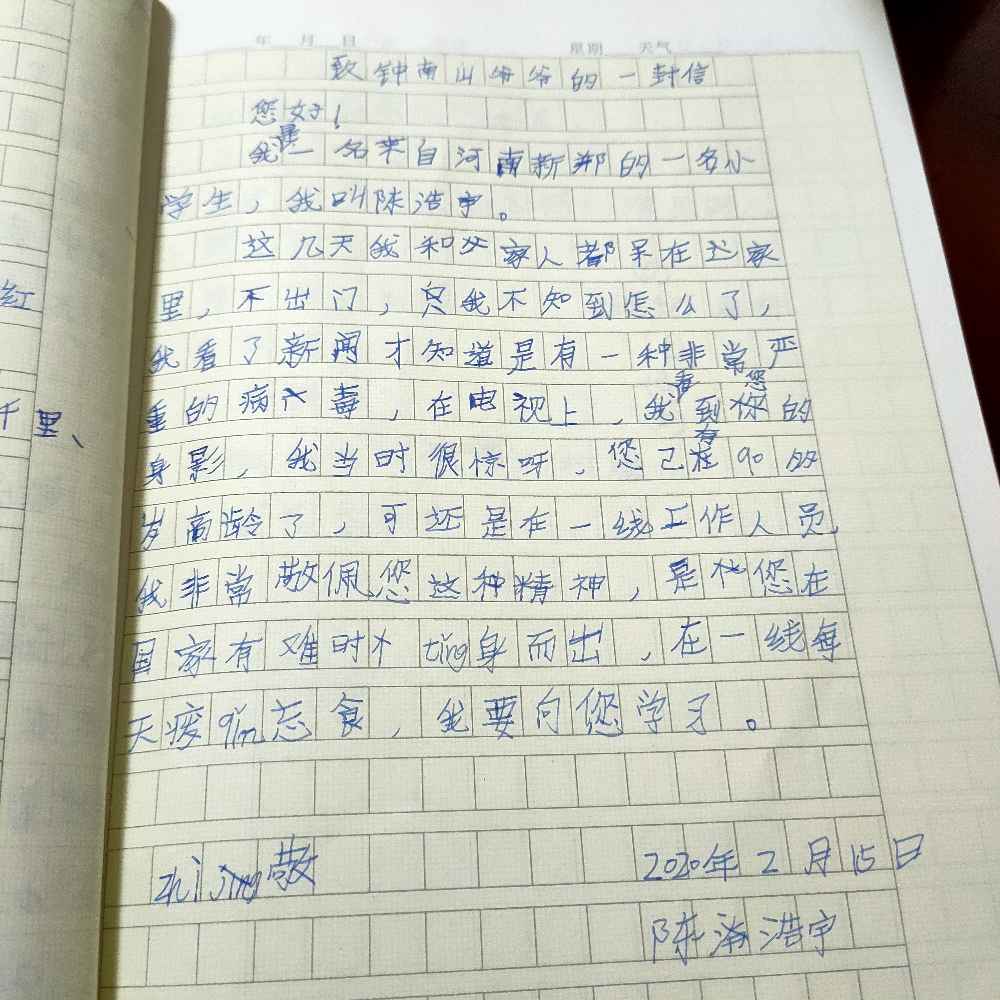 年 月 日 星期 天气
致钟南山爷爷的一封信
您好!
我是一名来自河南新郑的一名小
学生,我叫陈浩宇。
这几天我和家人都呆在家
里,不出门,我不知到怎么了,
我看了新闻才知道是有一种非常严
重的病毒,在电视上,我看到您的
身影,我当时很惊呀,您已有90的
岁高龄了,可还是在一线工作人员,
我非常敬佩您这种精神,是您在
国家有难时tǐng身而出,在一线每
天废qǐn忘食,我要向您学习。
zhi敬
2020年2月15日
陈浩宇
红
千里、